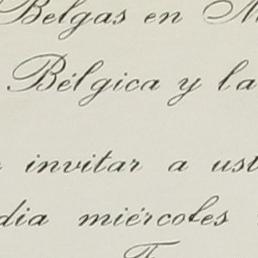 Belgas en M
Bélgica y la
invitar a ust
dia miércoles